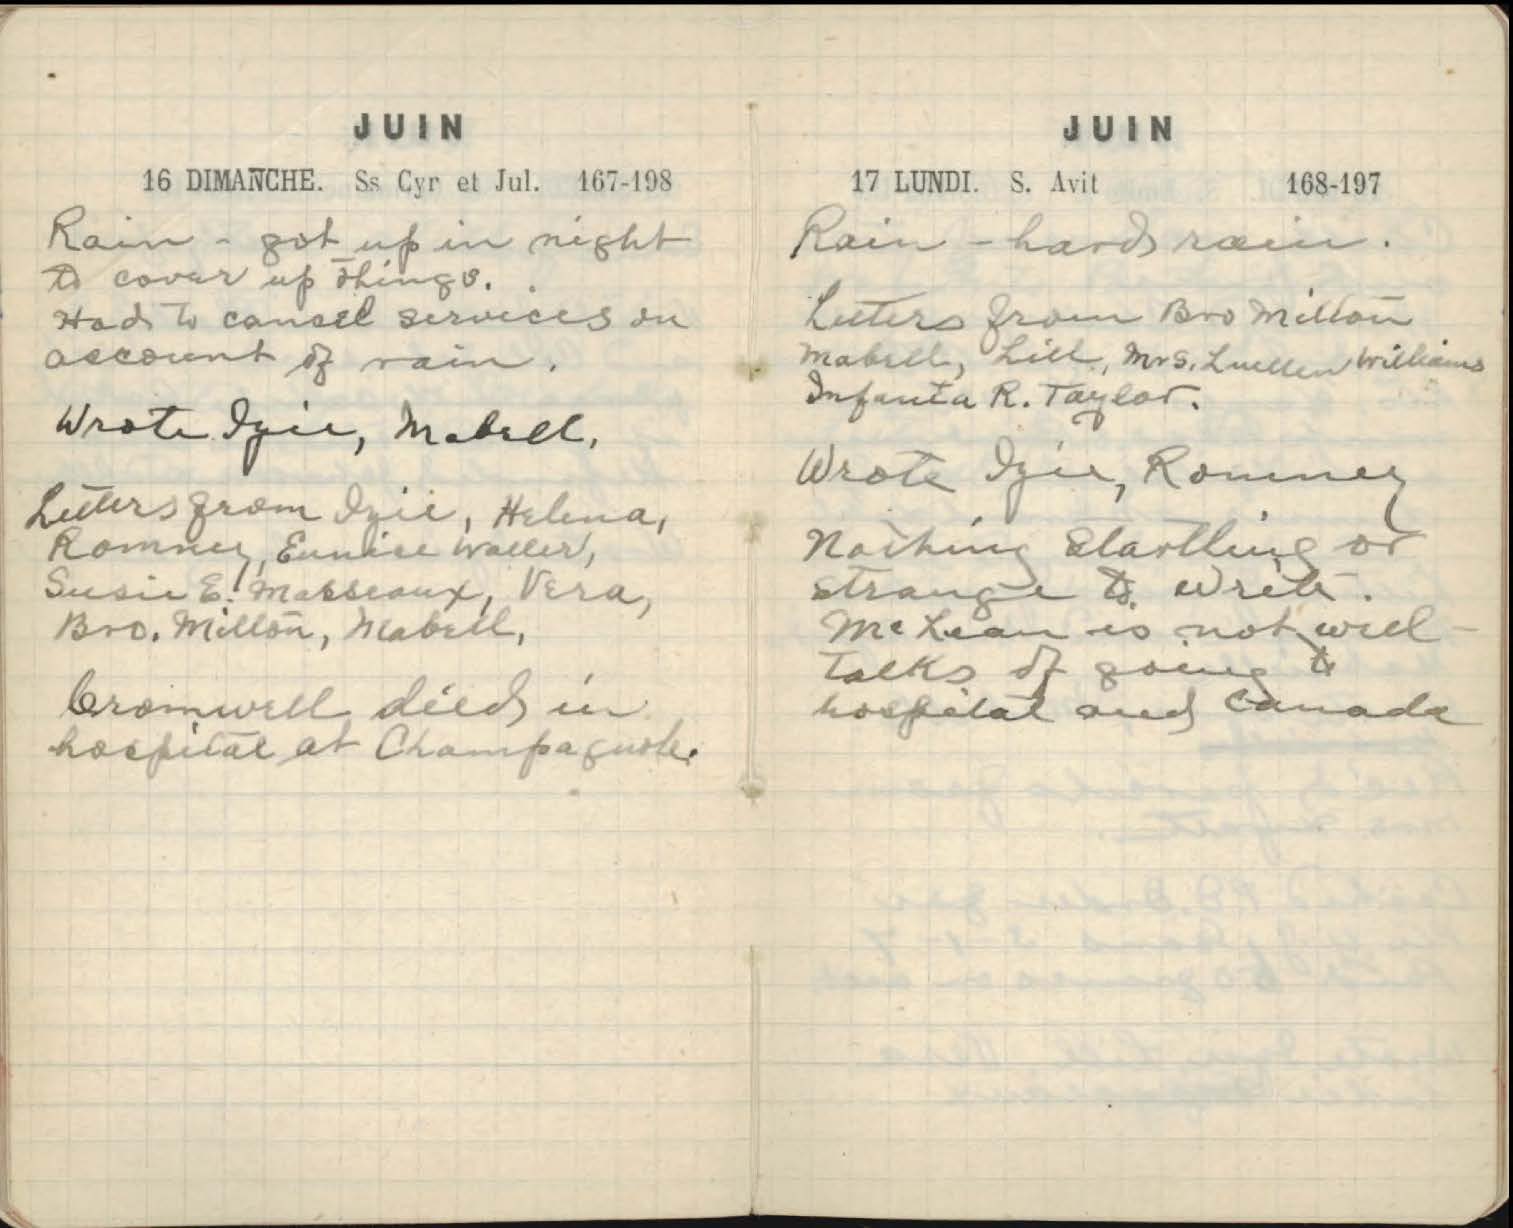 JUIN
16 DIMANCHE. Ss Cyr et Jul. 167-198
Rain - got up in night
to cover up things.
Had to cancel services on
account of rain.
Wrote Izie, Mabell,
Letters from Izie, Helena,
Romney, Eunice Waller,
Susie E. Masseaux, Vera,
Bro. Milton, Mabell,
Cromwell died in
hospital at Champagnole.
JUIN
17 LUNDI. S. Avit 168-197
Rain - hard rain.
Letters from Bro Milton
Mabell, Lill, Mrs. Luellen Williams
Infanta R. Taylor.
Wrote Izie, Romney
Nothing startling or
strange to write.
McLean is not well -
talks of going to
hospital and Canada